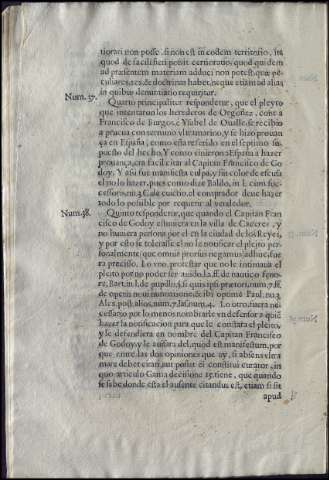 tiorari non posse, si non est in eodem territorio, in
quod de facili fieri possit certioratio; quod quidem
ad præsentem materiam adduci non potest, quæ pe-
culiares, res, & doctrinas habet, neque etiam ad alias
in quibus denuntiatio requiritur.
Num. 37. Quarto principaliter respondetur, que el pleyto
que intentaron los herederos de Orgoñez, contra
Francisco de Burgos, è Ysabel de Oualle, se recibio
a prueua con termino vltramarino, y se hizo prouan
ça en España, como esta referido en el septimo su-
puesto del hecho. Y como vinieron a España a hazer
prouança, era facil citar al Capitan Francisco de Go
doy. Y assi fue manifiesta culpa, y sin color de escusa
el no lo hazer, pues como dize Baldo, in l. cum suc-
cessores, nu. 4. C. de euictio. el comprador deue hazer
todo lo possible por requerir al vendedor.
Num. 38. Quinto respondetur, que quando el Capitan Fran
cisco de Godoy estuuiera en la villa de Caceres, y
no huuiera persona por el en la ciudad de los Reyes,
y por esto se tolerasse el no le notificar el pleito per-
sonalmente que omnia prorius negamus, adhuc fue
ra preciso. Lo vno, protestar que no le intimaua el
pleito por no poder ser auido.
ra, Bart. in l. de pupillo, §. si quis ipsi prætori, num. 7. ff.
de operis noui
Alex. post alios, num. 7. Iason, nu. 4. Lo otro, fuera ne-
cessario por lo menos nombrarle vn defensor a quiē
hazer la notificacion para que le constara el pleito,
y le defendiera en nombre del Capitan Francisco
de Godoy, y le auisara del, quod est manifestum, por
que entre las dos opiniones que ay, si absens vltra
mare debet citari, aut possit ei constitui curator, in
quo articulo Gama decisione 15. tiene, que quando
se sabe donde està el ausente citandus est, etiam si sit
apud